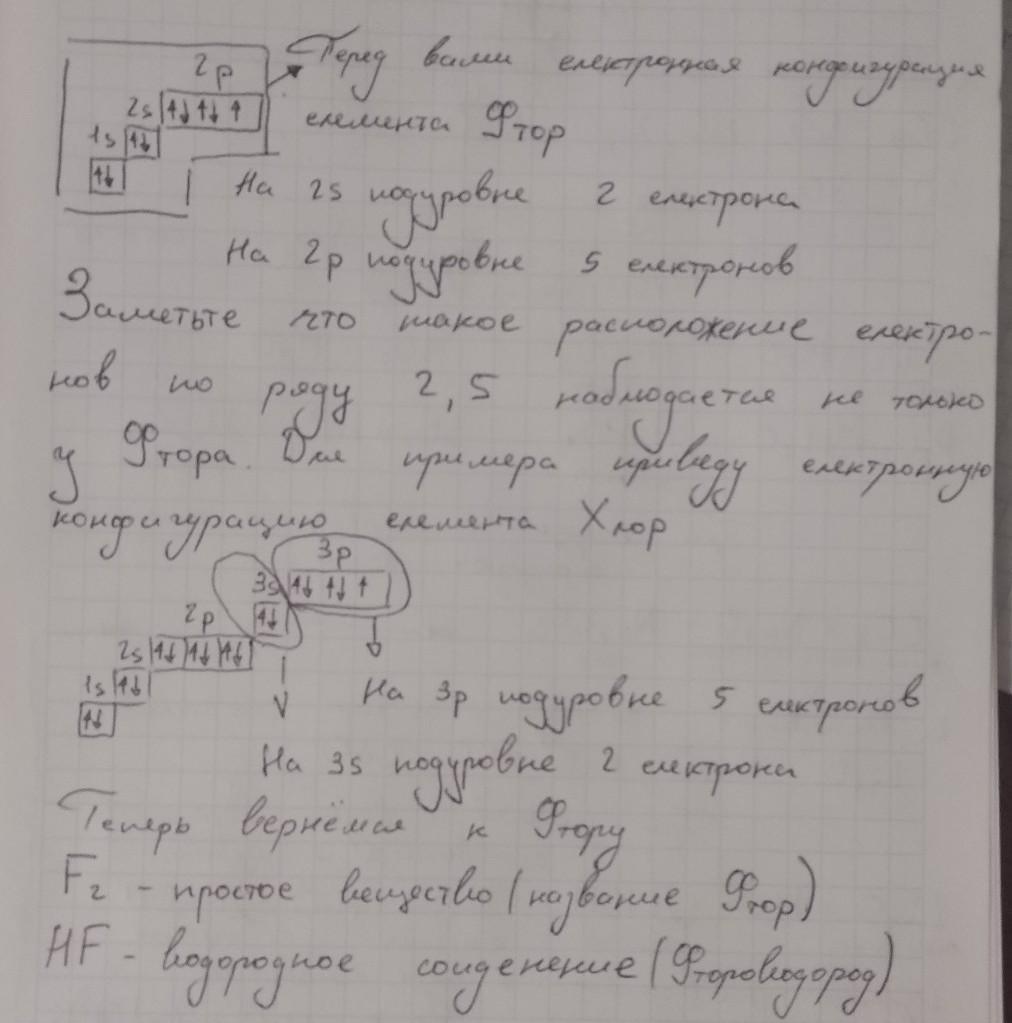 2p Перед вами електронная конфигурация
2s ↑↓ ↑↓ ↑
1s ↑↓ елемента Фтор
↑↓
На 2s подуровне 2 електрона
На 2p подуровне 5 електронов
Заметьте что такое расположение електро-
нов по ряду 2,5 наблюдается не только
у Фтора. Для примера приведу електронную
конфигурацию елемента Хлор
3p
3s ↑↓ ↑↓ ↑
2p ↑↓
2s ↑↓ ↑↓ ↑↓
1s ↑↓
↑↓
На 3p подуровне 5 електронов
На 3s подуровне 2 електрона
Теперь вернёмся к Фтору
F₂ - простое вещество (название Фтор)
HF - водородное соиденение (Фтороводород)